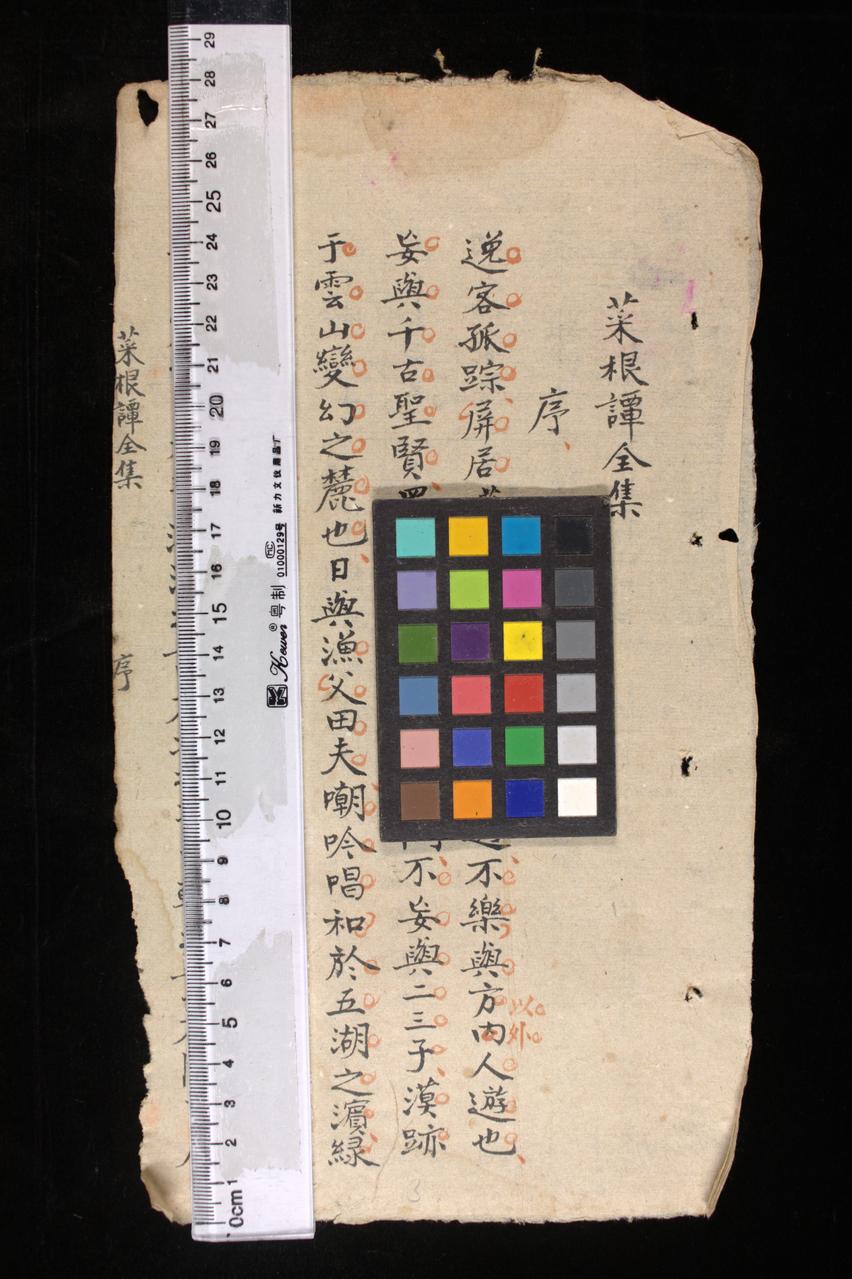 菜根譚全集
序
逸客孤踪屏居
不樂與方内人遊也
以外
妄與千古聖賢
不妄與二三子漠跡
于雲山變幻之麓也日與漁父田夫嘲吟唱和於五湖之濵緑
菜根譚全集
序
29 28 27 26 25 24 23 22 21 20 19 18 17 16 15 14 13 12 11 10 9 8 7 6 5 4 3 2 1 0cm
粤制 01000129号
Kewer®
3